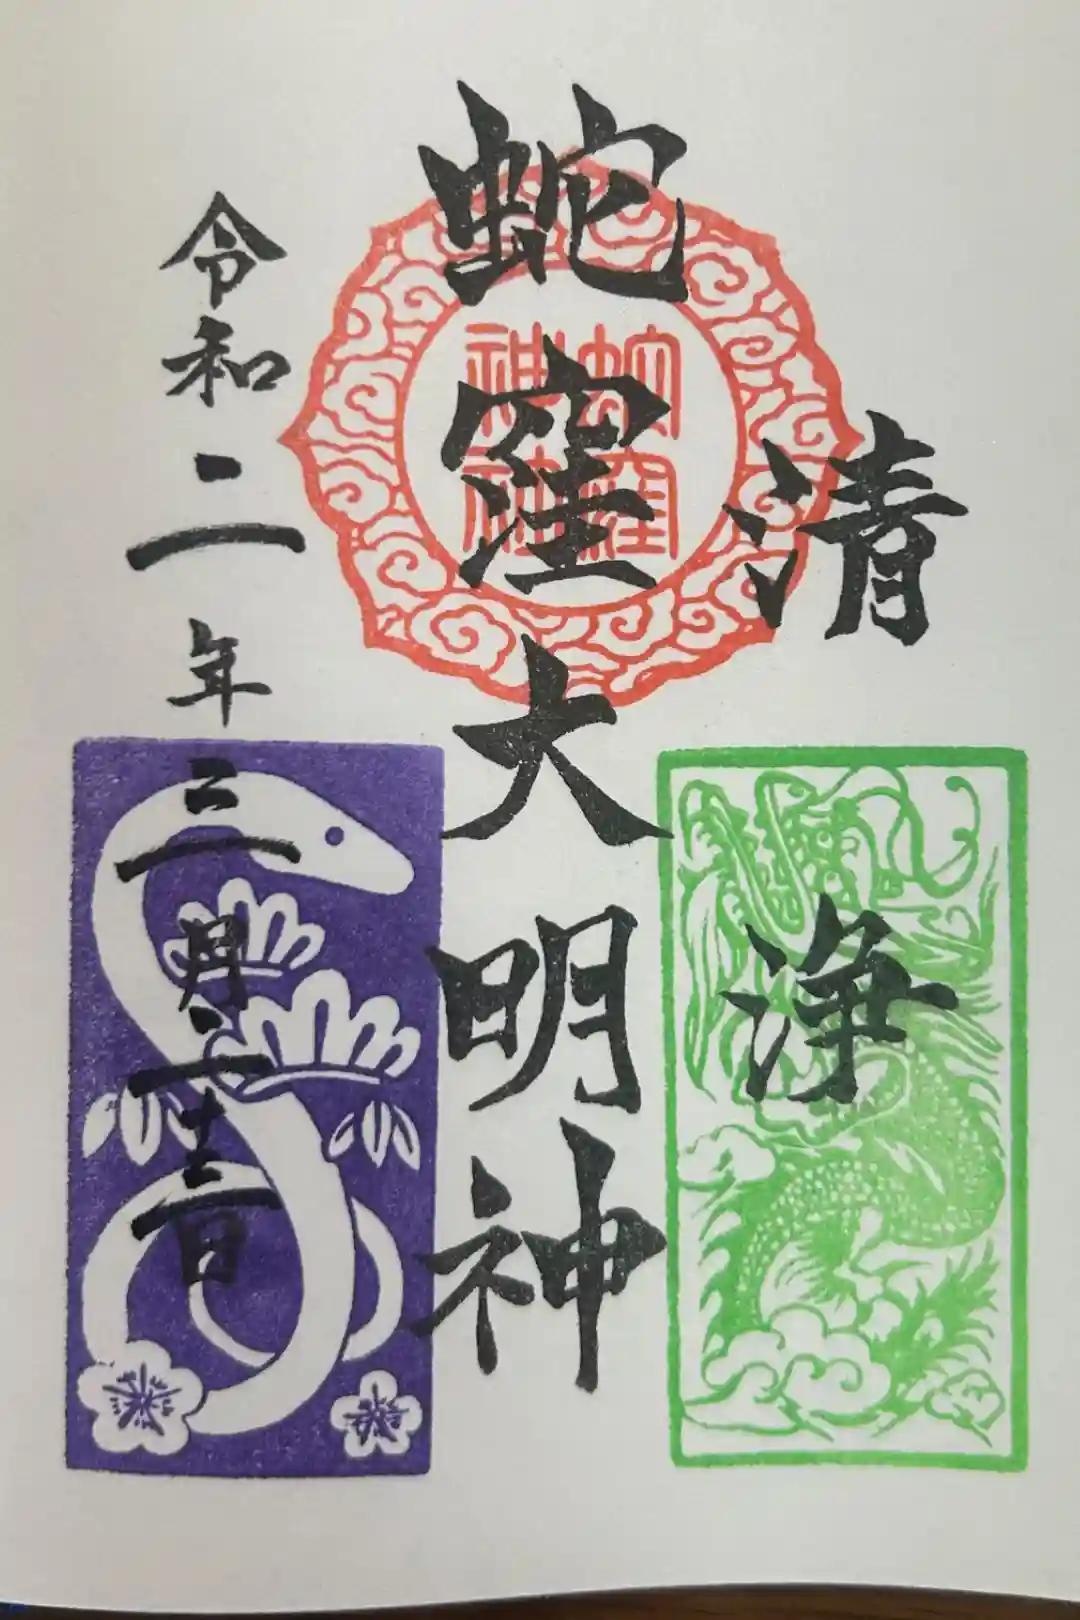 清浄
蛇窪大明神
蛇窪神社
令和二年三月二十三日